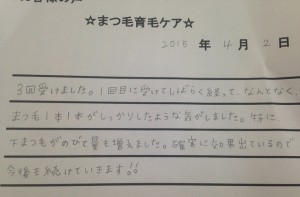 ☆まつ毛育毛ケア☆
2015 年 4 月 2 日
3回受けました。1回目に受けてしばらく経って、なんとなく、
まつ毛1本1本がしっかりしたような気がしました。特に
下まつ毛がのびて量も増えました。確実に効果出ているので
今後も続けていきます!!